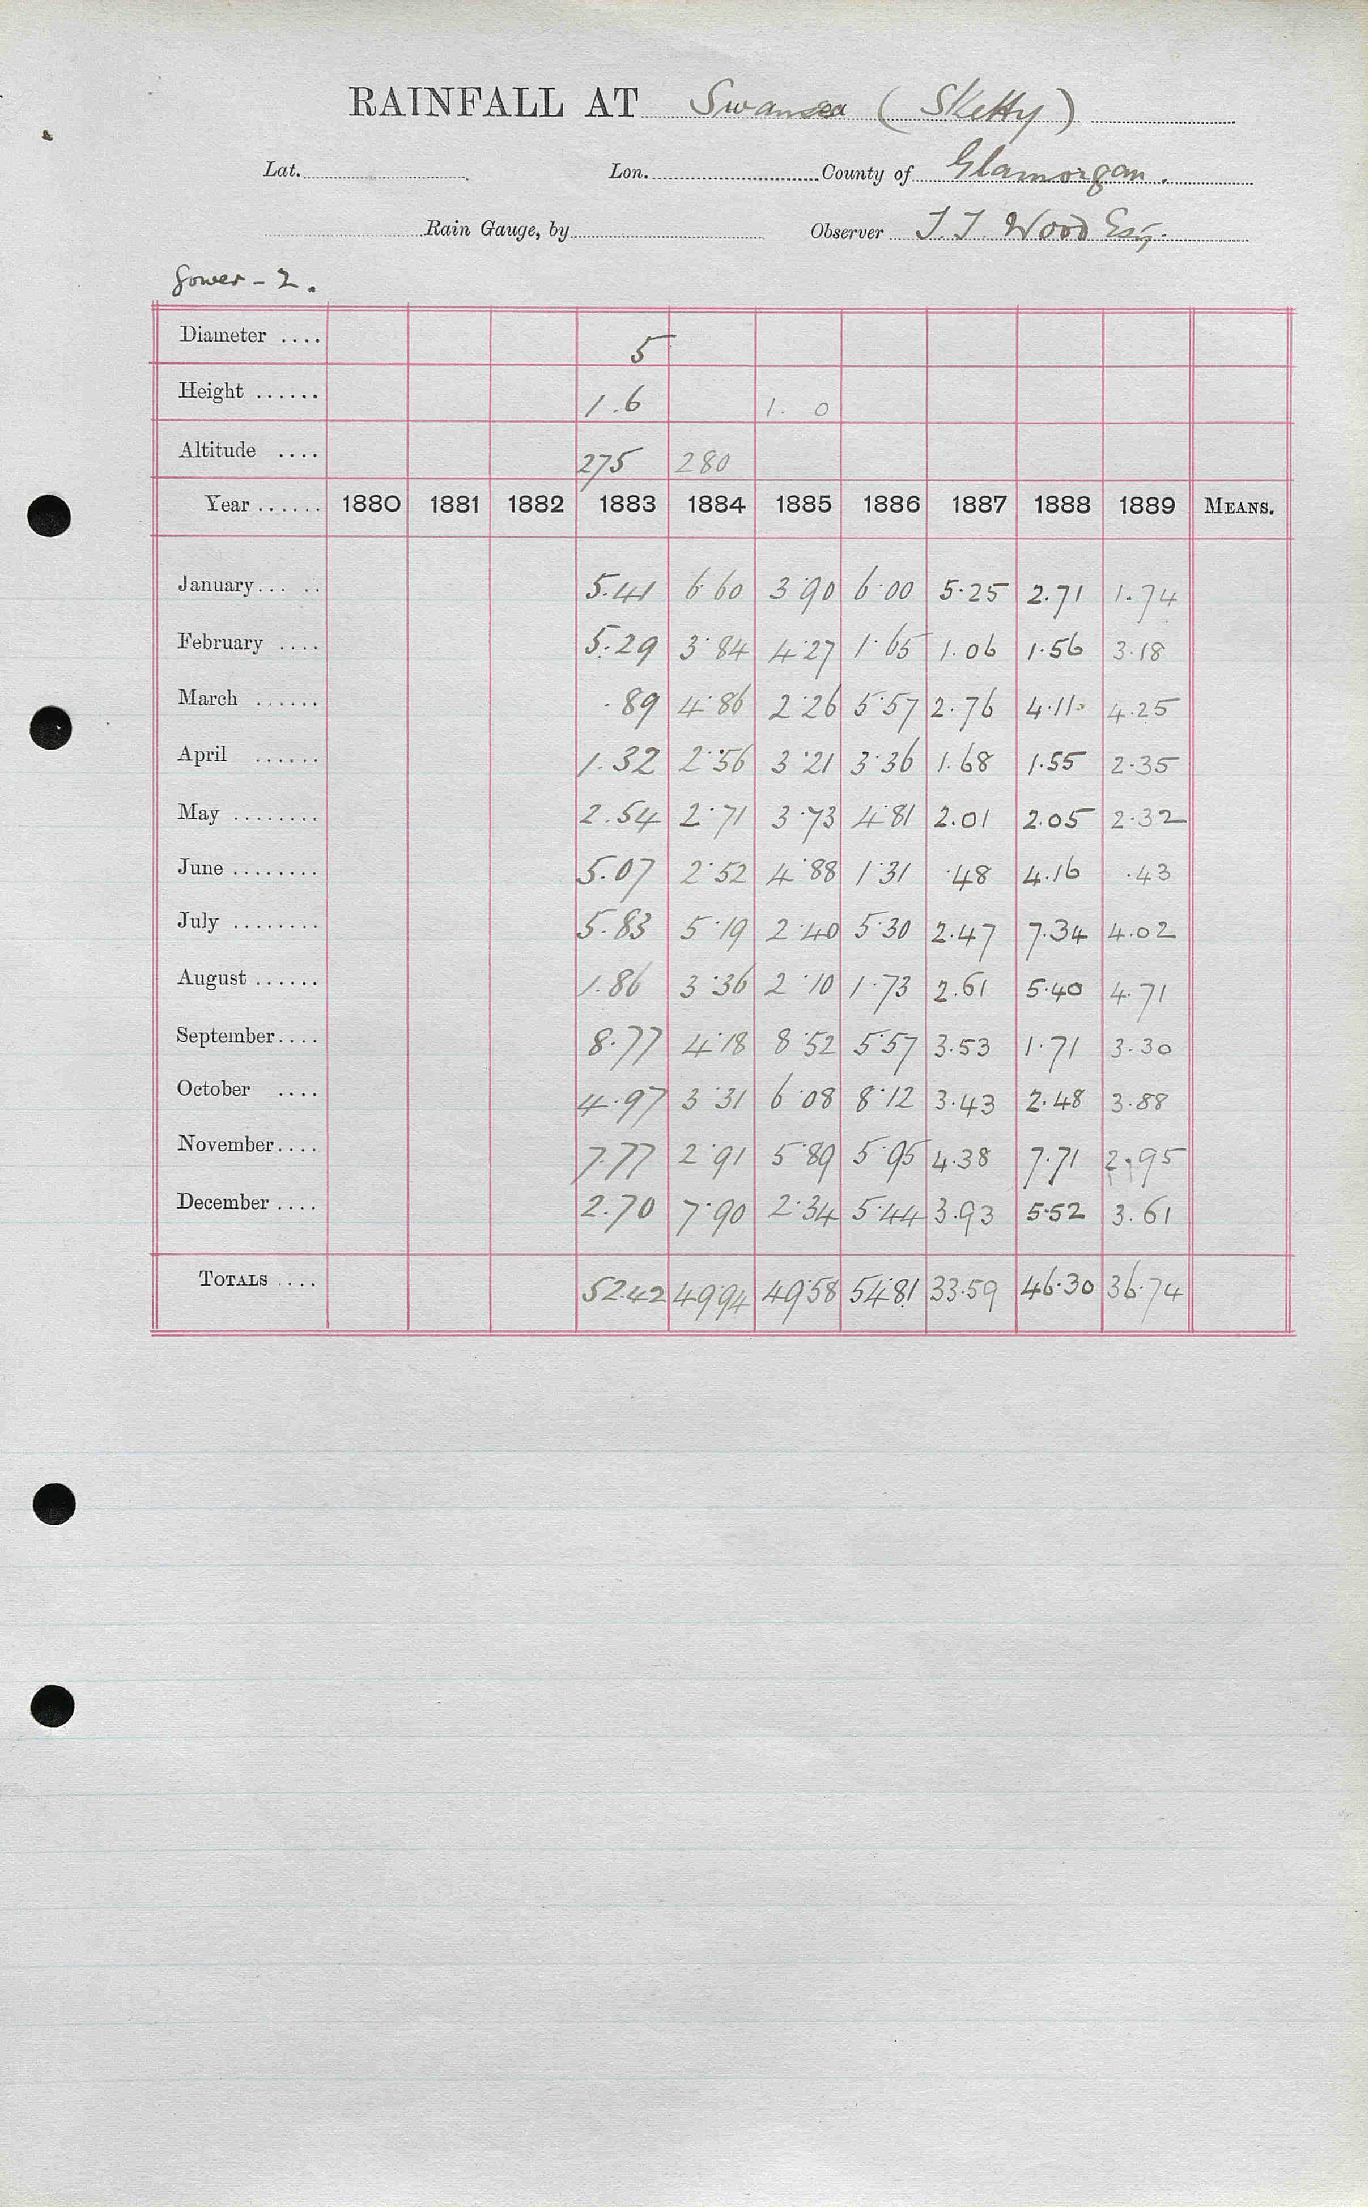 RAINFALL AT Swansea (Sketty)
Lat. Lon. County of Glamorgan.
Rain Gauge, by Observer T. T. Wood Esq.
Gower - 2.
Diameter .... 5
Height ...... 1.6 1. 0
Altitude .... 275 280
Year ...... 1880 1881 1882 1883 1884 1885 1886 1887 1888 1889 MEANS.
January... .. 5.41 6.60 3.90 6.00 5.25 2.71 1.74
February .... 5.29 3.84 4.27 1.65 1.06 1.56 3.18
March ...... .89 4.86 2.26 5.57 2.76 4.11 4.25
April ...... 1.32 2.56 3.21 3.36 1.68 1.55 2.35
May ........ 2.54 2.71 3.73 4.81 2.01 2.05 2.32
June ........ 5.07 2.52 4.88 1.31 .48 4.16 .43
July ........ 5.83 5.19 2.40 5.30 2.47 7.34 4.02
August ...... 1.86 3.36 2.10 1.73 2.61 5.40 4.71
September.... 8.77 4.18 8.52 5.57 3.53 1.71 3.30
October .... 4.97 3.31 6.08 8.12 3.43 2.48 3.88
November.... 7.77 2.91 5.89 5.95 4.38 7.71 2.95
December .... 2.70 7.90 2.34 5.44 3.93 5.52 3.61
TOTALS .... 52.42 49.94 49.58 54.81 33.59 46.30 36.74